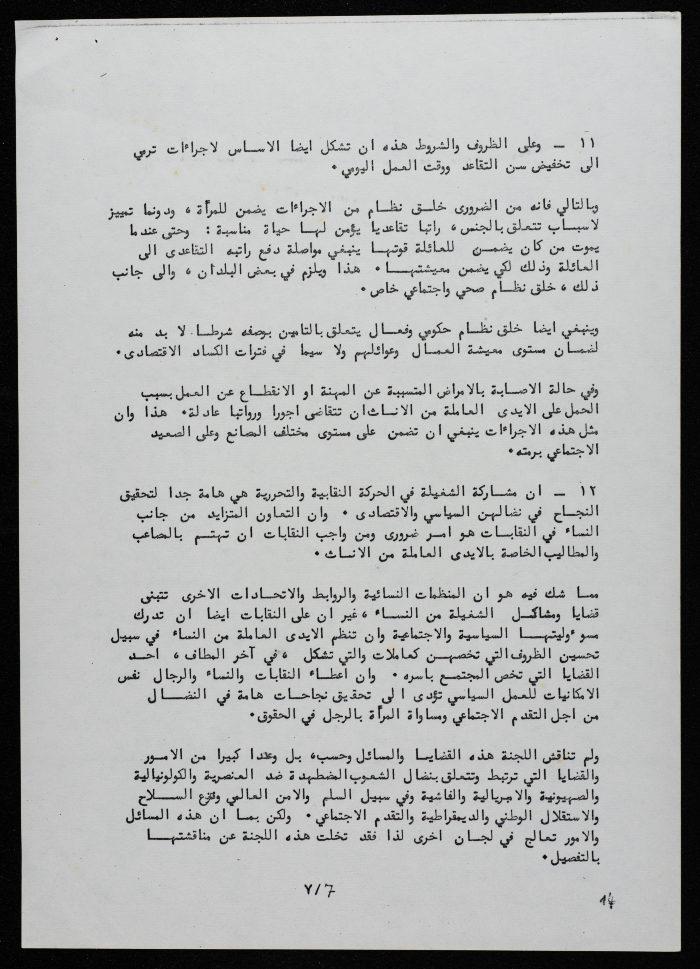 ١١ – وعلى الظروف والشروط هذه ان تشكل ايضا الاساس لاجراءات ترمي
الى تخفيض سن التقاعد ووقت العمل اليومي ٠
وبالتالي فانه من الضرورى خلق نظام من الاجراءات يضمن للمرأة ، ودونما تمييز
لاسباب تتعلق بالجنس ، راتبا تقاعديا يؤمن لها حياة مناسبة : وحتى عندما
يموت من كان يضمن للعائلة قوتها ينبغي مواصلة دفع راتبه التقاعدى الى
العائلة وذلك لكي يضمن معيشتها ٠ هذا ويلزم في بعض البلدان ، والى جانب
ذلك ، خلق نظام صحي واجتماعي خاص ٠
وينبغي ايضا خلق نظام حكومي وفعال يتعلق بالتامين بوصفه شرطا لا بد منه
لضمان مستوى معيشة العمال وعوائلهم ولا سيما في فترات الكساد الاقتصادى ٠
وفي حالة الاصابة بالامراض المتسببة عن المهنة او الانقطاع عن العمل بسبب
الحمل على الايدى العاملة من الاناث ان تتقاضى اجورا ورواتبا عادلة ٠ هذا وان
مثل هذه الاجراءات ينبغي ان تضمن على مستوى مختلف المصانع وعلى الصعيد
الاجتماعي برمته ٠
١٢ – ان مشاركة الشغيلة في الحركة النقابية والتحررية هي هامة جدا لتحقيق
النجاح في نضالهن السياسي والاقتصادى ٠ وان التعاون المتزايد من جانب
النساء في النقابات هو امر ضرورى ومن واجب النقابات ان تهتم بالمصاعب
والمطاليب الخاصة بالايدى العاملة من الاناث ٠
مما شك فيه هو ان المنظمات النسائية والروابط والاتحادات الاخرى تتبنى
قضايا ومشاكل الشغيلة من النساء ، غير ان على النقابات ايضا ان تدرك
مسوءوليتها السياسية والاجتماعية وان تنظم الايدى العاملة من النساء في سبيل
تحسين الظروف التي تخصهن كعاملات والتي تشكل ، في آخر المطاف ، احد
القضايا التي تخص المجتمع باسره ٠ وان اعطاء النقابات والنساء والرجال نفس
الامكانيات للعمل السياسي تؤدى الى تحقيق نجاحات هامة في النضال
من اجل التقدم الاجتماعي ومساواة المرأة بالرجل في الحقوق ٠
ولم تناقش اللجنة هذه القضايا والمسائل وحسب، بل وعددا كبيرا من الامور
والقضايا التي ترتبط وتتعلق بنضال الشعوب المضطهدة ضد العنصرية والكولونيالية
والصهيونية والامبريالية والفاشية وفي سبيل السلم والامن العالمي ونزع السلاح
والاستقلال الوطني والديمقراطية والتقدم الاجتماعي ٠ ولكن بما ان هذه المسائل
والامور تعالج في لجان اخرى لذا فقد تخلت هذه اللجنة عن مناقشتها
بالتفصيل ٠
٧/7
14